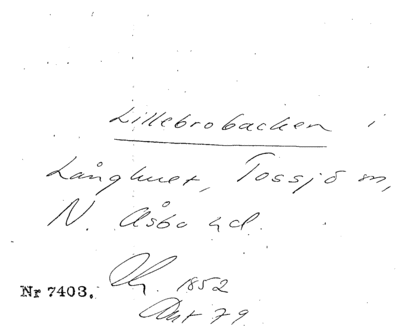 Lillebrobacken i
Långhuet, Tossjö sn,
N. Åsbo hd.
1852
Nr 7403.
Ant 79